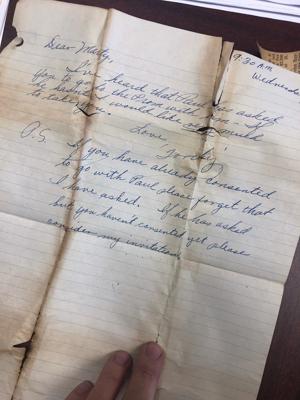 9:30 A.M.
Wednesda
Dear Marty,
I've heard that Paul has asked
you to go to the Prom with him. If
he hasn't I would like very much
to take you.
Love,
P.S.
If you have already consented
to go with Paul please forget that
I have asked. If he has asked
but you haven't consented yet please
consider my invitation.